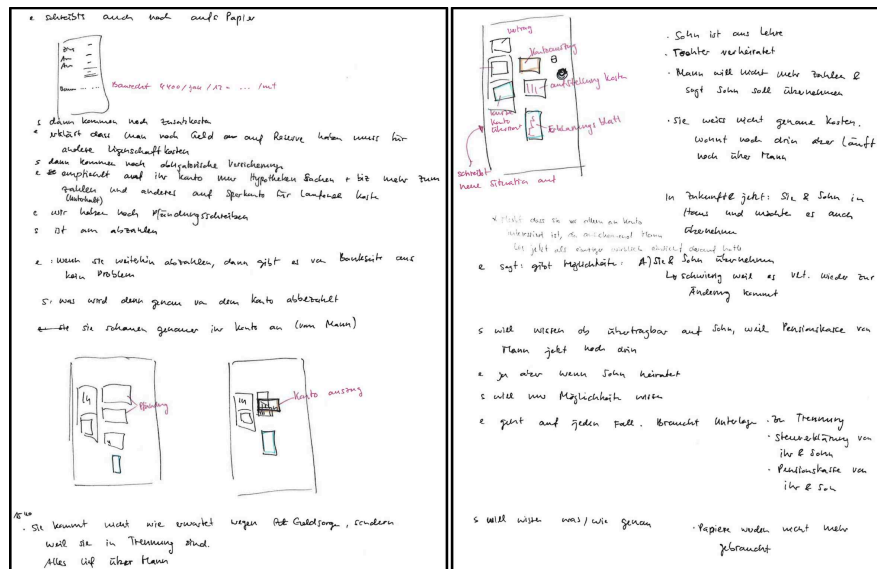 e schreibts auch noch aufs Papier
Baurecht 4400/Jahr/12 = ... /mt
Baur ... ...
s dann kommen noch Zusatzkosten
e erklärt dass man noch Geld auf Reserve haben muss für
andere Eigenschaftkosten
s dann kommen noch obligatorische Versicherung
e empfiehlt auf ihr Konto nur Hypotheken Sachen + biz mehr zum
zahlen und anderes auf Sparkonto für Laufende Koste
(Unterhalt)
e wir haben noch Pfändungsschreiben
s ist am abzahlen
e : wenn sie weiterhin abzahlen, dann gibt es von Bankseite aus
kein Problem
s: was wird denn genau von dem Konto abbezahlt
sie schauen genauer ihr Konto an (vom Mann)
Pfändung
Konto auszug
15 40
· Sie kommt nicht wie erwartet wegen Geldsorge, sondern
weil sie in Trennung sind.
Alles lief über Mann
Vertrag
Kontoauszug
aufstellung Koste
Konto
übersicht
Erklärungsblatt
schreibt
neue Situation auf
· Sohn ist aus Lehre
· Tochter verheiratet
· Mann will nicht mehr zahlen &
sagt Sohn soll übernehmen
· Sie weiss nicht genaue Kosten.
wohnt noch drin aber läuft
noch über Mann
In Zukunft & jetzt: Sie & Sohn in
Haus und möchte es auch
übernehmen
* Merkt dass sie vor allem an Konto
interessiert ist, da anscheinend Mann
bis jetzt als einziger wirklich einsicht darauf hatte
e sagt: gibt Möglichkeite: A) Sie & Sohn übernehmen
↳ schwierig weil es vlt. wieder zur
Änderung kommt
s will wissen ob übertragbar auf Sohn, weil Pensionskasse von
Mann jetzt noch drin
e ja aber wenn Sohn heiratet
s will nur Möglichkeite wissen
e geht auf jeden Fall. Braucht Unterlage · zu Trennung
· Steuererklärung von
ihr & Sohn
· Pensionskasse von
ihr & Sohn
s will wissen was/wie genau
· Papiere wurden nicht mehr
gebraucht